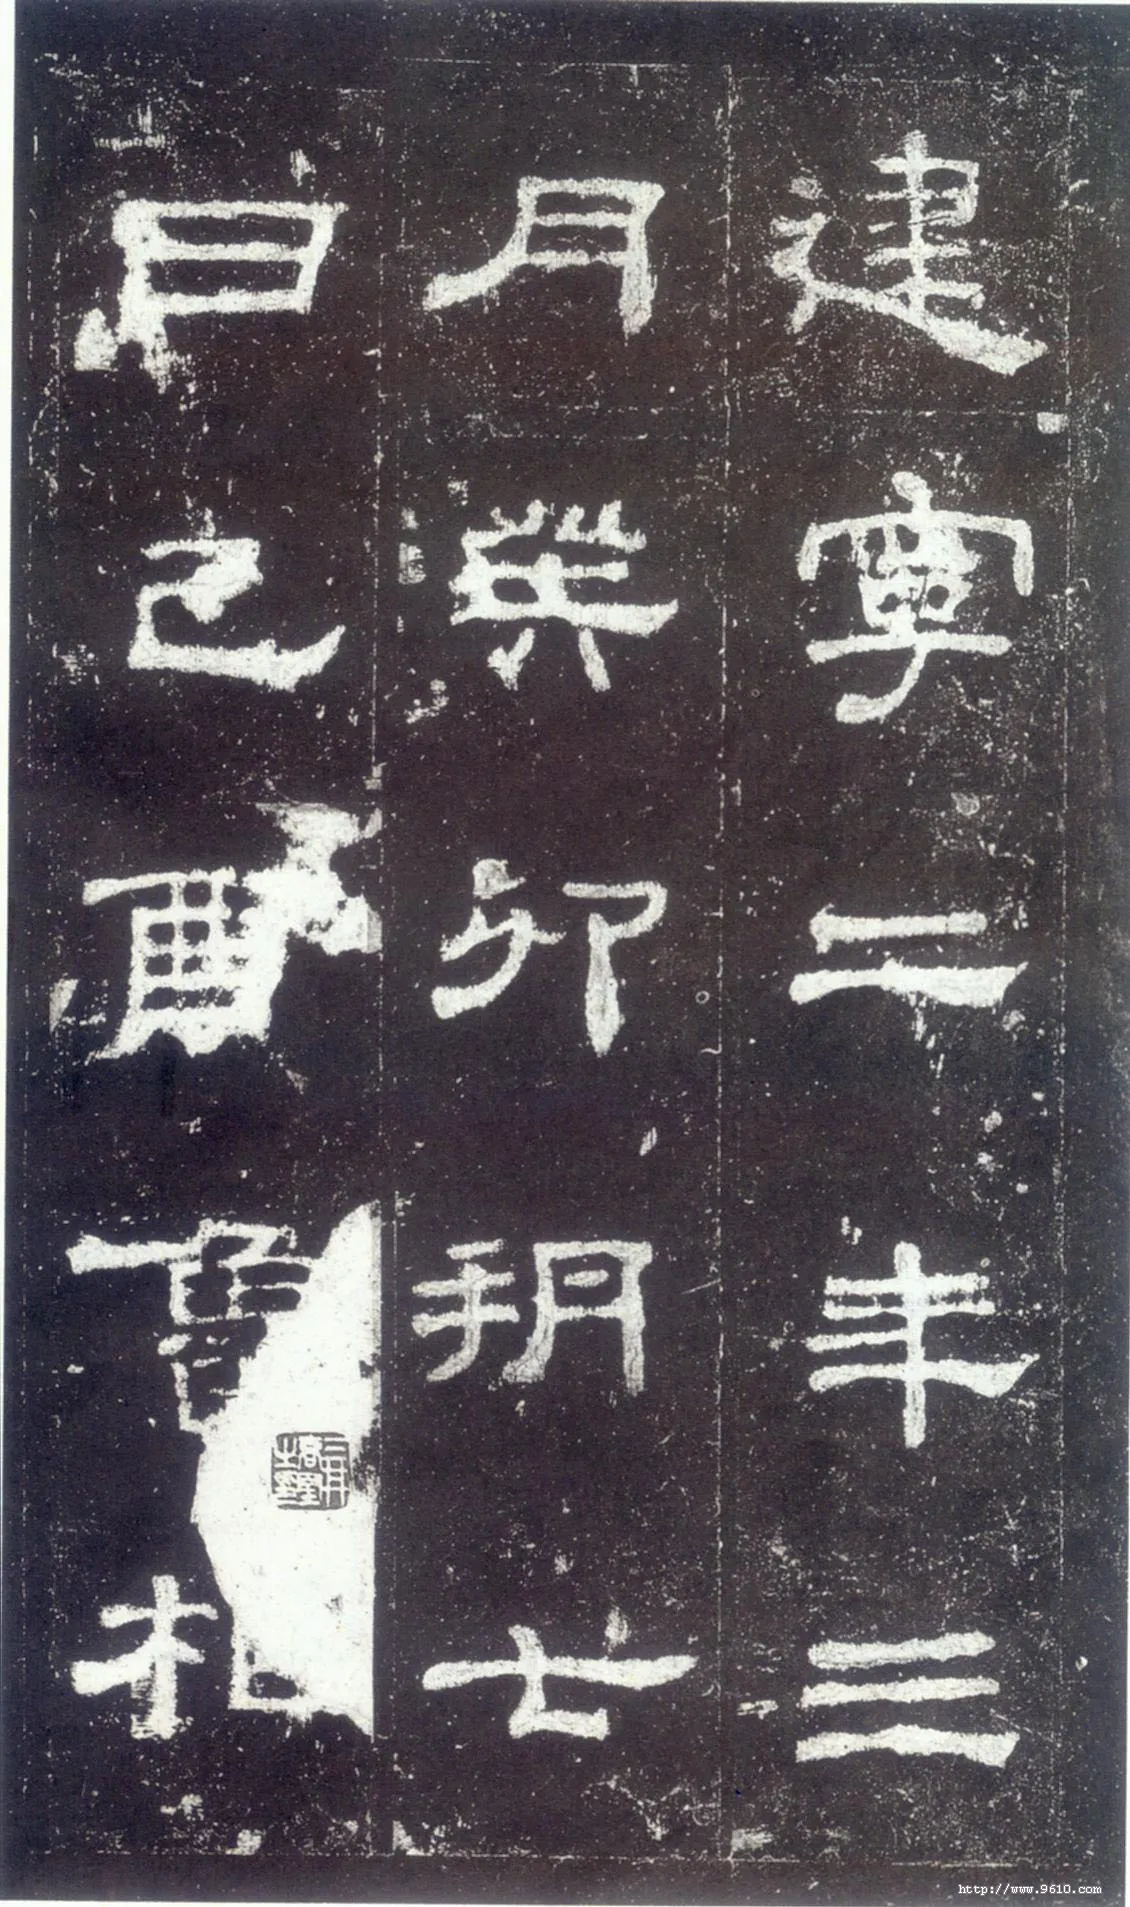 建寧二年三
月癸卯朔七
日己酉魯相
http://www.9610.com